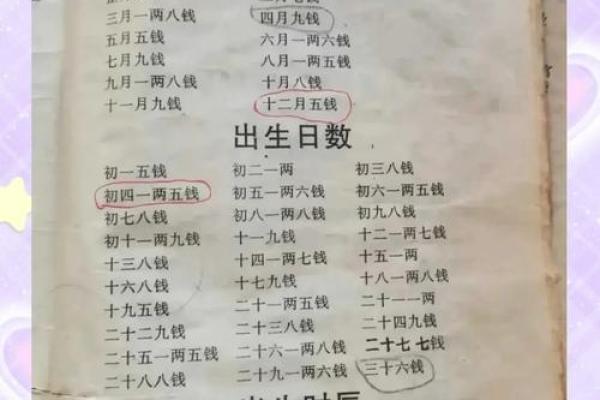 三月一两八钱 四月九钱
五月五钱 六月一两六钱
七月九钱 八月一两五钱
九月一两八钱 十月八钱
十一月九钱 十二月五钱
出生日数
初一五钱 初二一两 初三八钱
初四一两五钱 初五一两六钱 初六一两五钱
初七八钱 初八一两八钱 初九八钱
初十一两九钱 十一九钱 十二一两七钱
十三八钱 十四一两七钱 十五一两
十六八钱 十七九钱 十八一两八钱
十九五钱 二十一两五钱 二十一一两
二十二九钱 二十三八钱 二十四九钱
二十五一两五钱 二十六一两八钱 二十七七钱
二十八八钱 二十九一两六钱 三十六钱